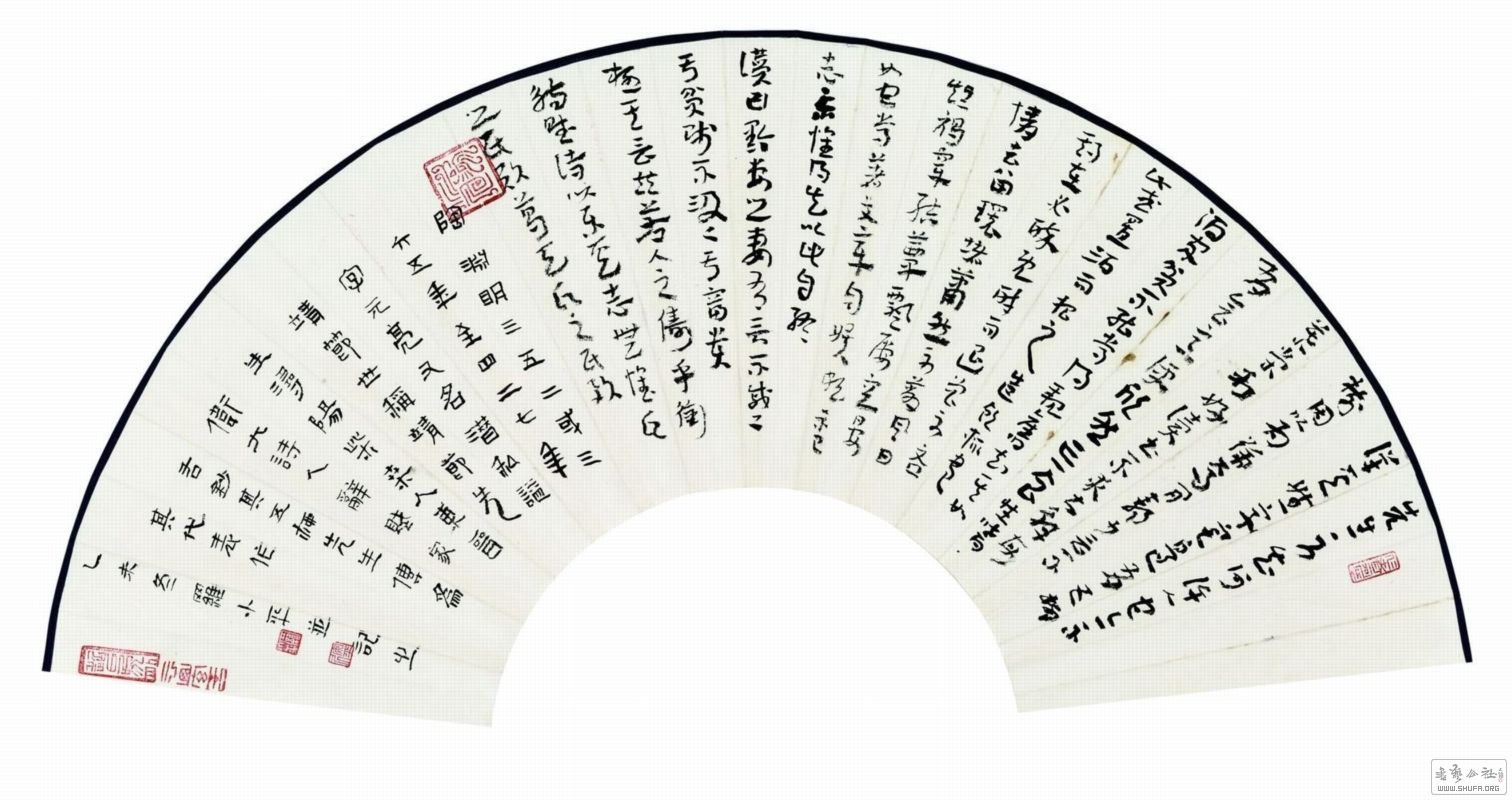 先生不知何許人也亦不
詳其姓字宅邊有五柳
樹因以爲號焉閑靜少言不
慕榮利好讀書不求甚解
每有會意便欣然忘食性嗜
酒家貧不能常得親舊知其如
此或置酒而招之造飲輒盡
期在必醉既醉而退曾不吝
情去留環堵蕭然不蔽風日
短褐穿結簞瓢屢空晏
如也常著文章自娛頗示己
志忘懷得失以此自終
讚曰黔婁之妻有言不戚戚
于貧賤不汲汲于富貴
極其言茲若人之儔乎銜
觴賦詩以樂其志無懷氏
之民歟葛天氏之民歟
陶淵明三五二或三
六五年至四二七年
字元亮又名潛私謚
靖節世稱靖節先
生潯陽柴桑人東晉
偉大詩人辭賦家
吾鈔其五柳先生傳爲
其代表作
乙未冬羅小平並記之
WWW.SHUFA.ORG